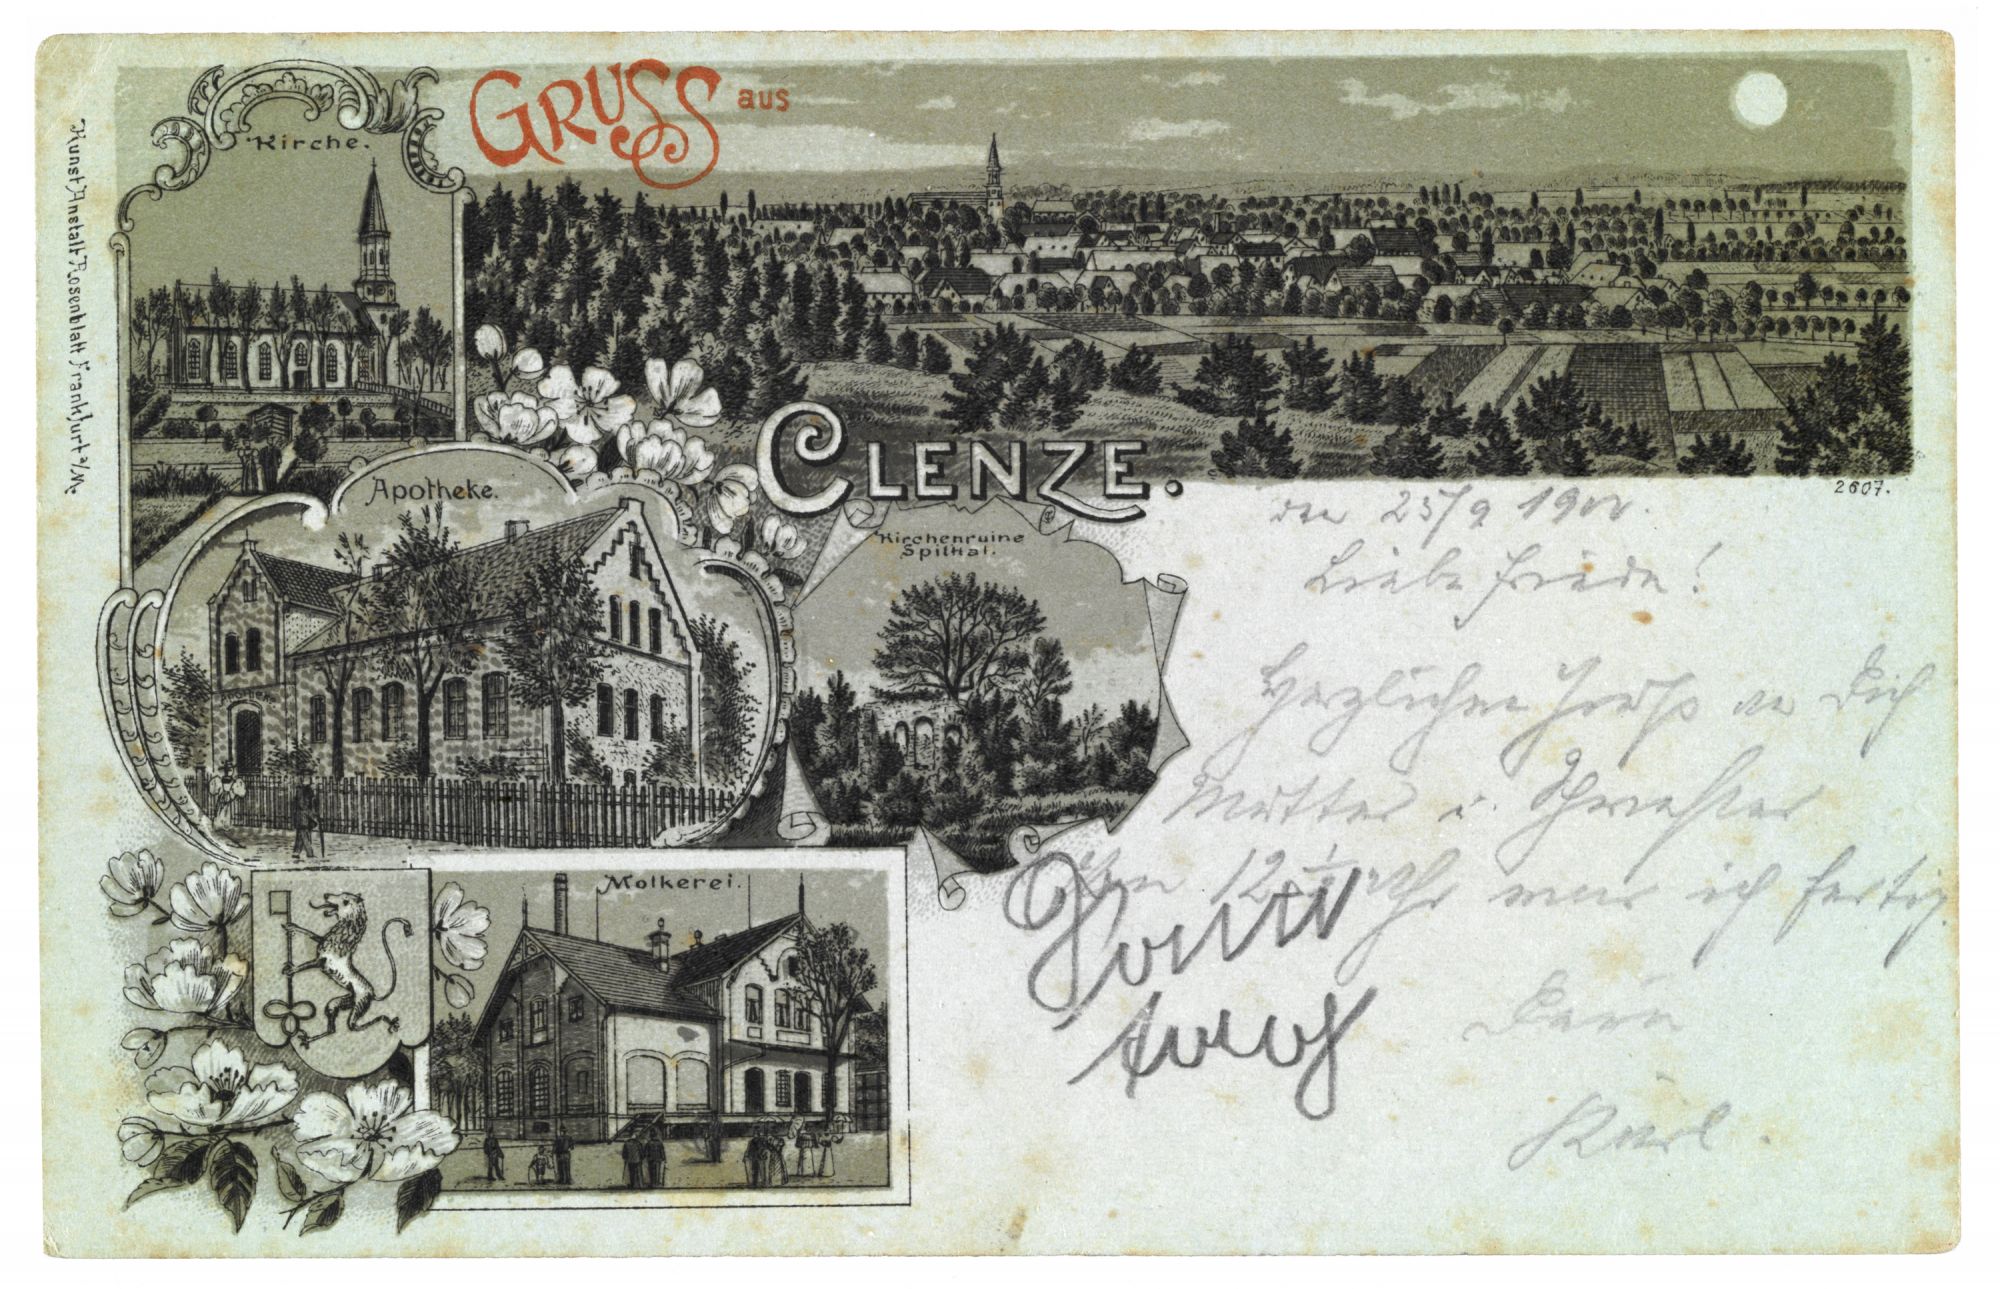 Kirche.
GRUSS aus
Kunst Anstalt Rosenblatt Frankfurt a/M.
CLENZE.
2607.
Apotheke.
Kirchenruine
Spithal.
Molkerei.
den 23/9 1900.
Liebe Frieda!
Herzlichen Gruß an Dich
Mutter u. Schwester
Um 12 1/2 Uhr war ich fertig.
Dein
Karl.